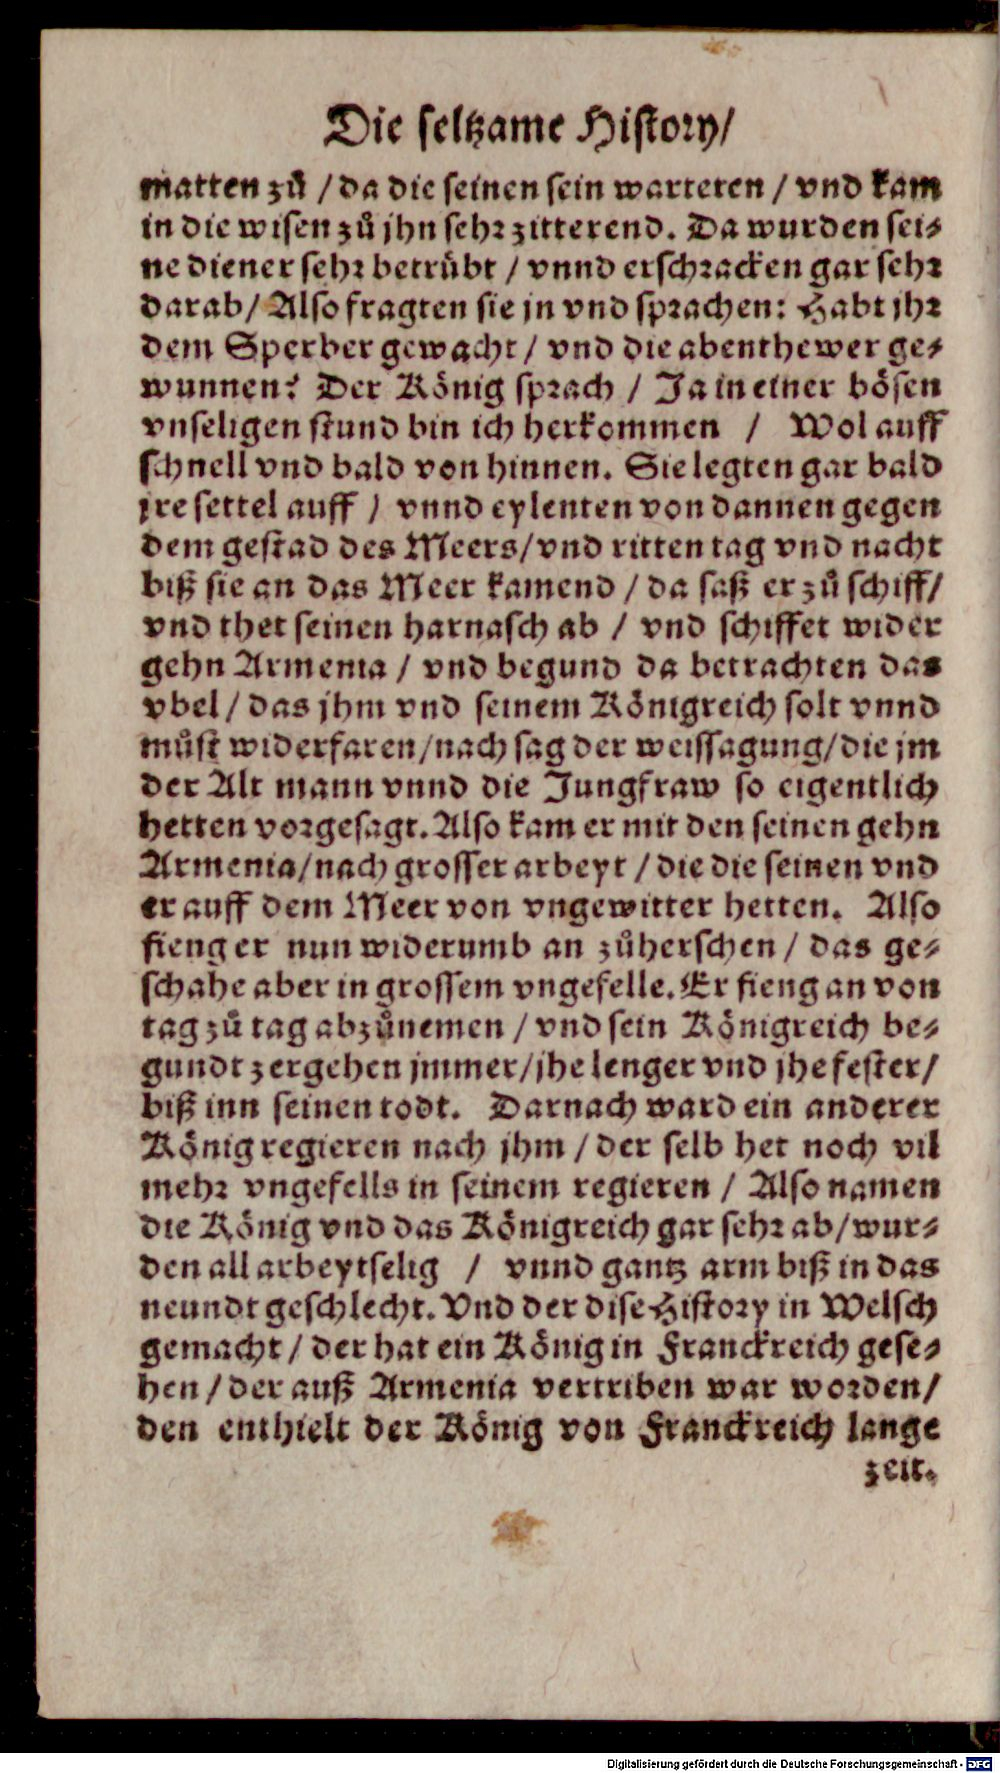 Die seltzame History/
matten zů / da die seinen sein warteten / vnd kam
in die wisen zů jhn sehr zitterend. Da wurden sei⸗
ne diener sehr betrübt / vnnd erschracken gar sehr
darab / Also fragten sie jn vnd sprachen: Habt jhr
dem Sperber gewacht / vnd die abenthewer ge⸗
wunnen? Der König sprach / Ja in einer bösen
vnseligen stund bin ich herkommen / Wol auff
schnell vnd bald von hinnen. Sie legten gar bald
jre settel auff / vnnd eylenten von dannen gegen
dem gestad des Meers / vnd ritten tag vnd nacht
biß sie an das Meer kamend / da saß er zů schiff /
vnd thet seinen harnasch ab / vnd schiffet wider
gehn Armenia / vnd begund da betrachten das
vbel / das jhm vnd seinem Königreich solt vnnd
můst widerfaren / nach sag der weissagung / die jm
der Alt mann vnnd die Jungfraw so eigentlich
hetten vorgesagt. Also kam er mit den seinen gehn
Armenia / nach grosser arbeyt / die die seinen vnd
er auff dem Meer von vngewitter hetten. Also
fieng er nun widerumb an zůherschen / das ge⸗
schahe aber in grossem vngefelle. Er fieng an von
tag zů tag abzůnemen / vnd sein Königreich be⸗
gundt zergehen jmmer / jhe lenger vnd jhe fester /
biß inn seinen todt. Darnach ward ein anderer
König regieren nach jhm / der selb het noch vil
mehr vngefells in seinem regieren / Also namen
die König vnd das Königreich gar sehr ab / wur⸗
den all arbeytselig / vnnd gantz arm biß in das
neundt geschlecht. Vnd der dise History in Welsch
gemacht / der hat ein König in Franckreich gese⸗
hen / der auß Armenia vertriben war worden /
den enthielt der König von Franckreich lange
zeit.
Digitalisierung gefördert durch die Deutsche Forschungsgemeinschaft - DFG